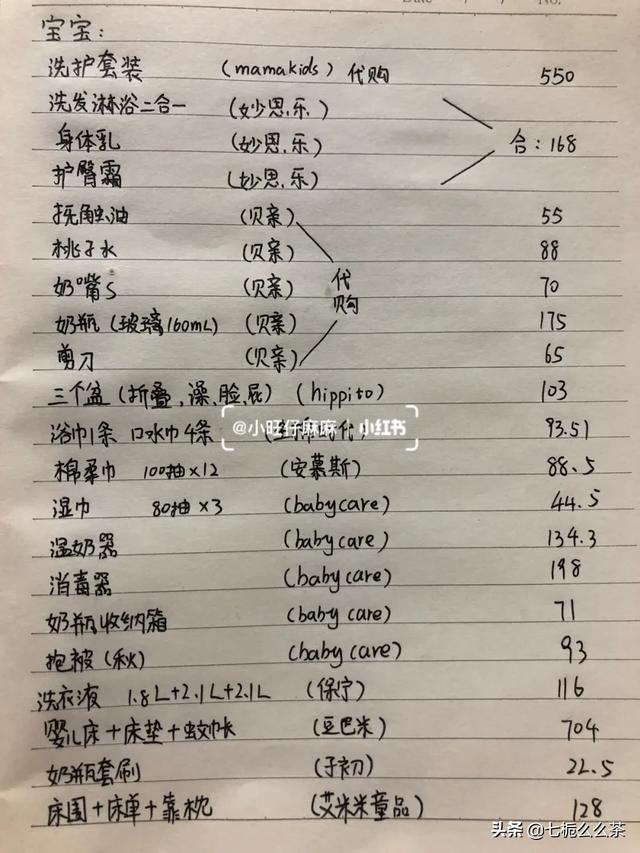 宝宝：
洗护套装 （mamakids）代购 550
洗发淋浴二合一 （妙思乐）
身体乳 （妙思乐） 合：168
护臀霜 （妙思乐）
抚触油 （贝亲） 55
桃子水 （贝亲） 88
奶嘴S （贝亲） 代购 70
奶瓶（玻璃160mL）（贝亲） 175
剪刀 （贝亲） 65
三个盆（折叠、澡、脸、屁）（hippito） 103
@小旺仔麻麻 小红书
浴巾1条 口水巾4条 93.51
棉柔巾 100抽×12 （安慕斯） 88.5
湿巾 80抽×3 （babycare） 44.5
温奶器 （babycare） 134.3
消毒器 （babycare） 198
奶瓶收纳箱 （babycare） 71
抱被（秋） （babycare） 93
洗衣液 1.8L+2.1L+2.1L （保宁） 116
婴儿床+床垫+蚊帐 （豆巴米） 704
奶瓶套刷 （子初） 22.5
床围+床单+靠枕 （艾米米童品） 128
头条@七栀么么茶